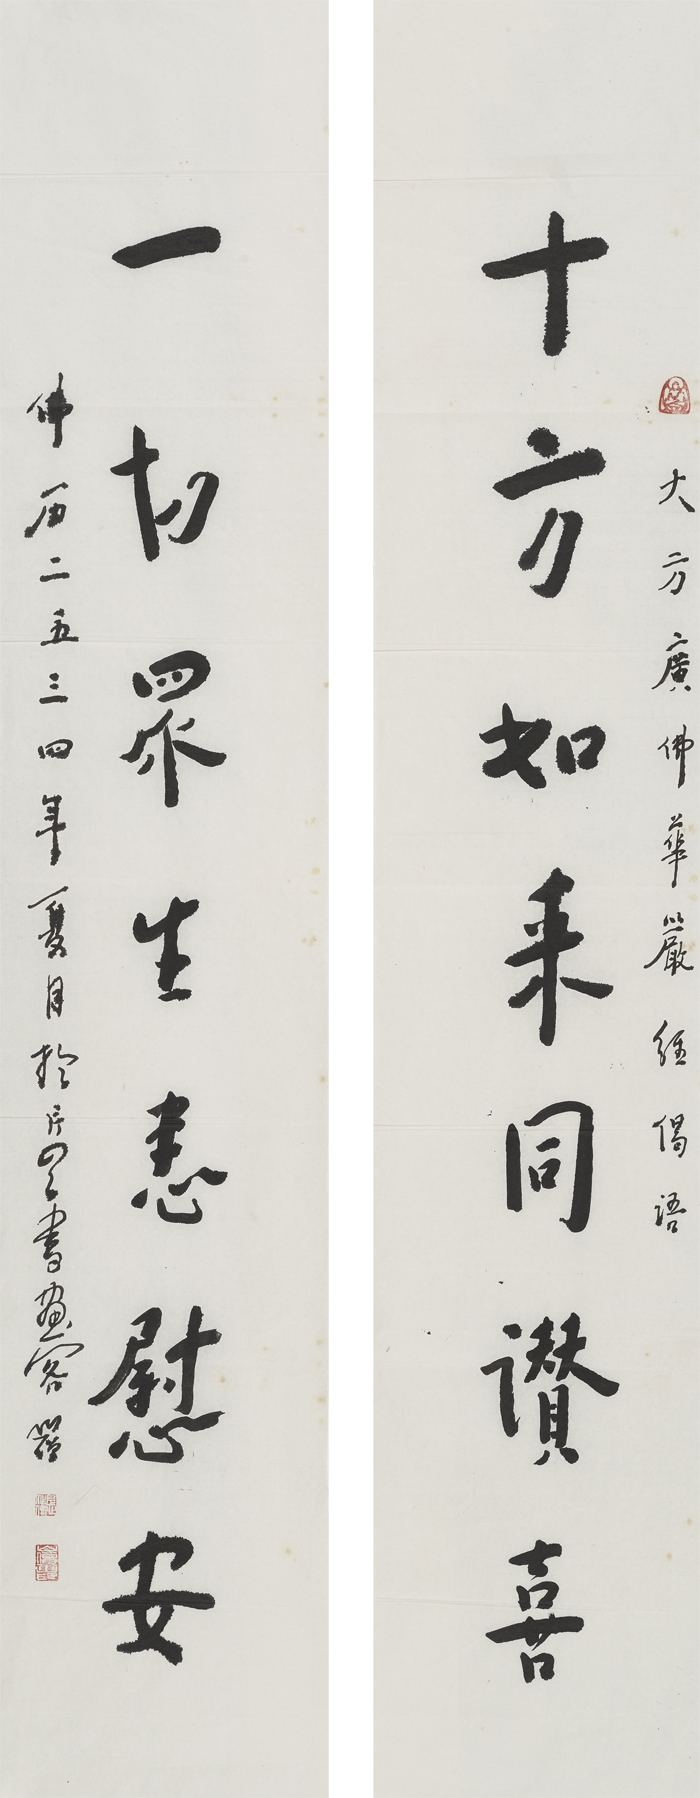 大方廣佛華嚴經偈語
十方如来同讃喜
一切眾生悉慰安
佛历二五三四年夏月於
書畫